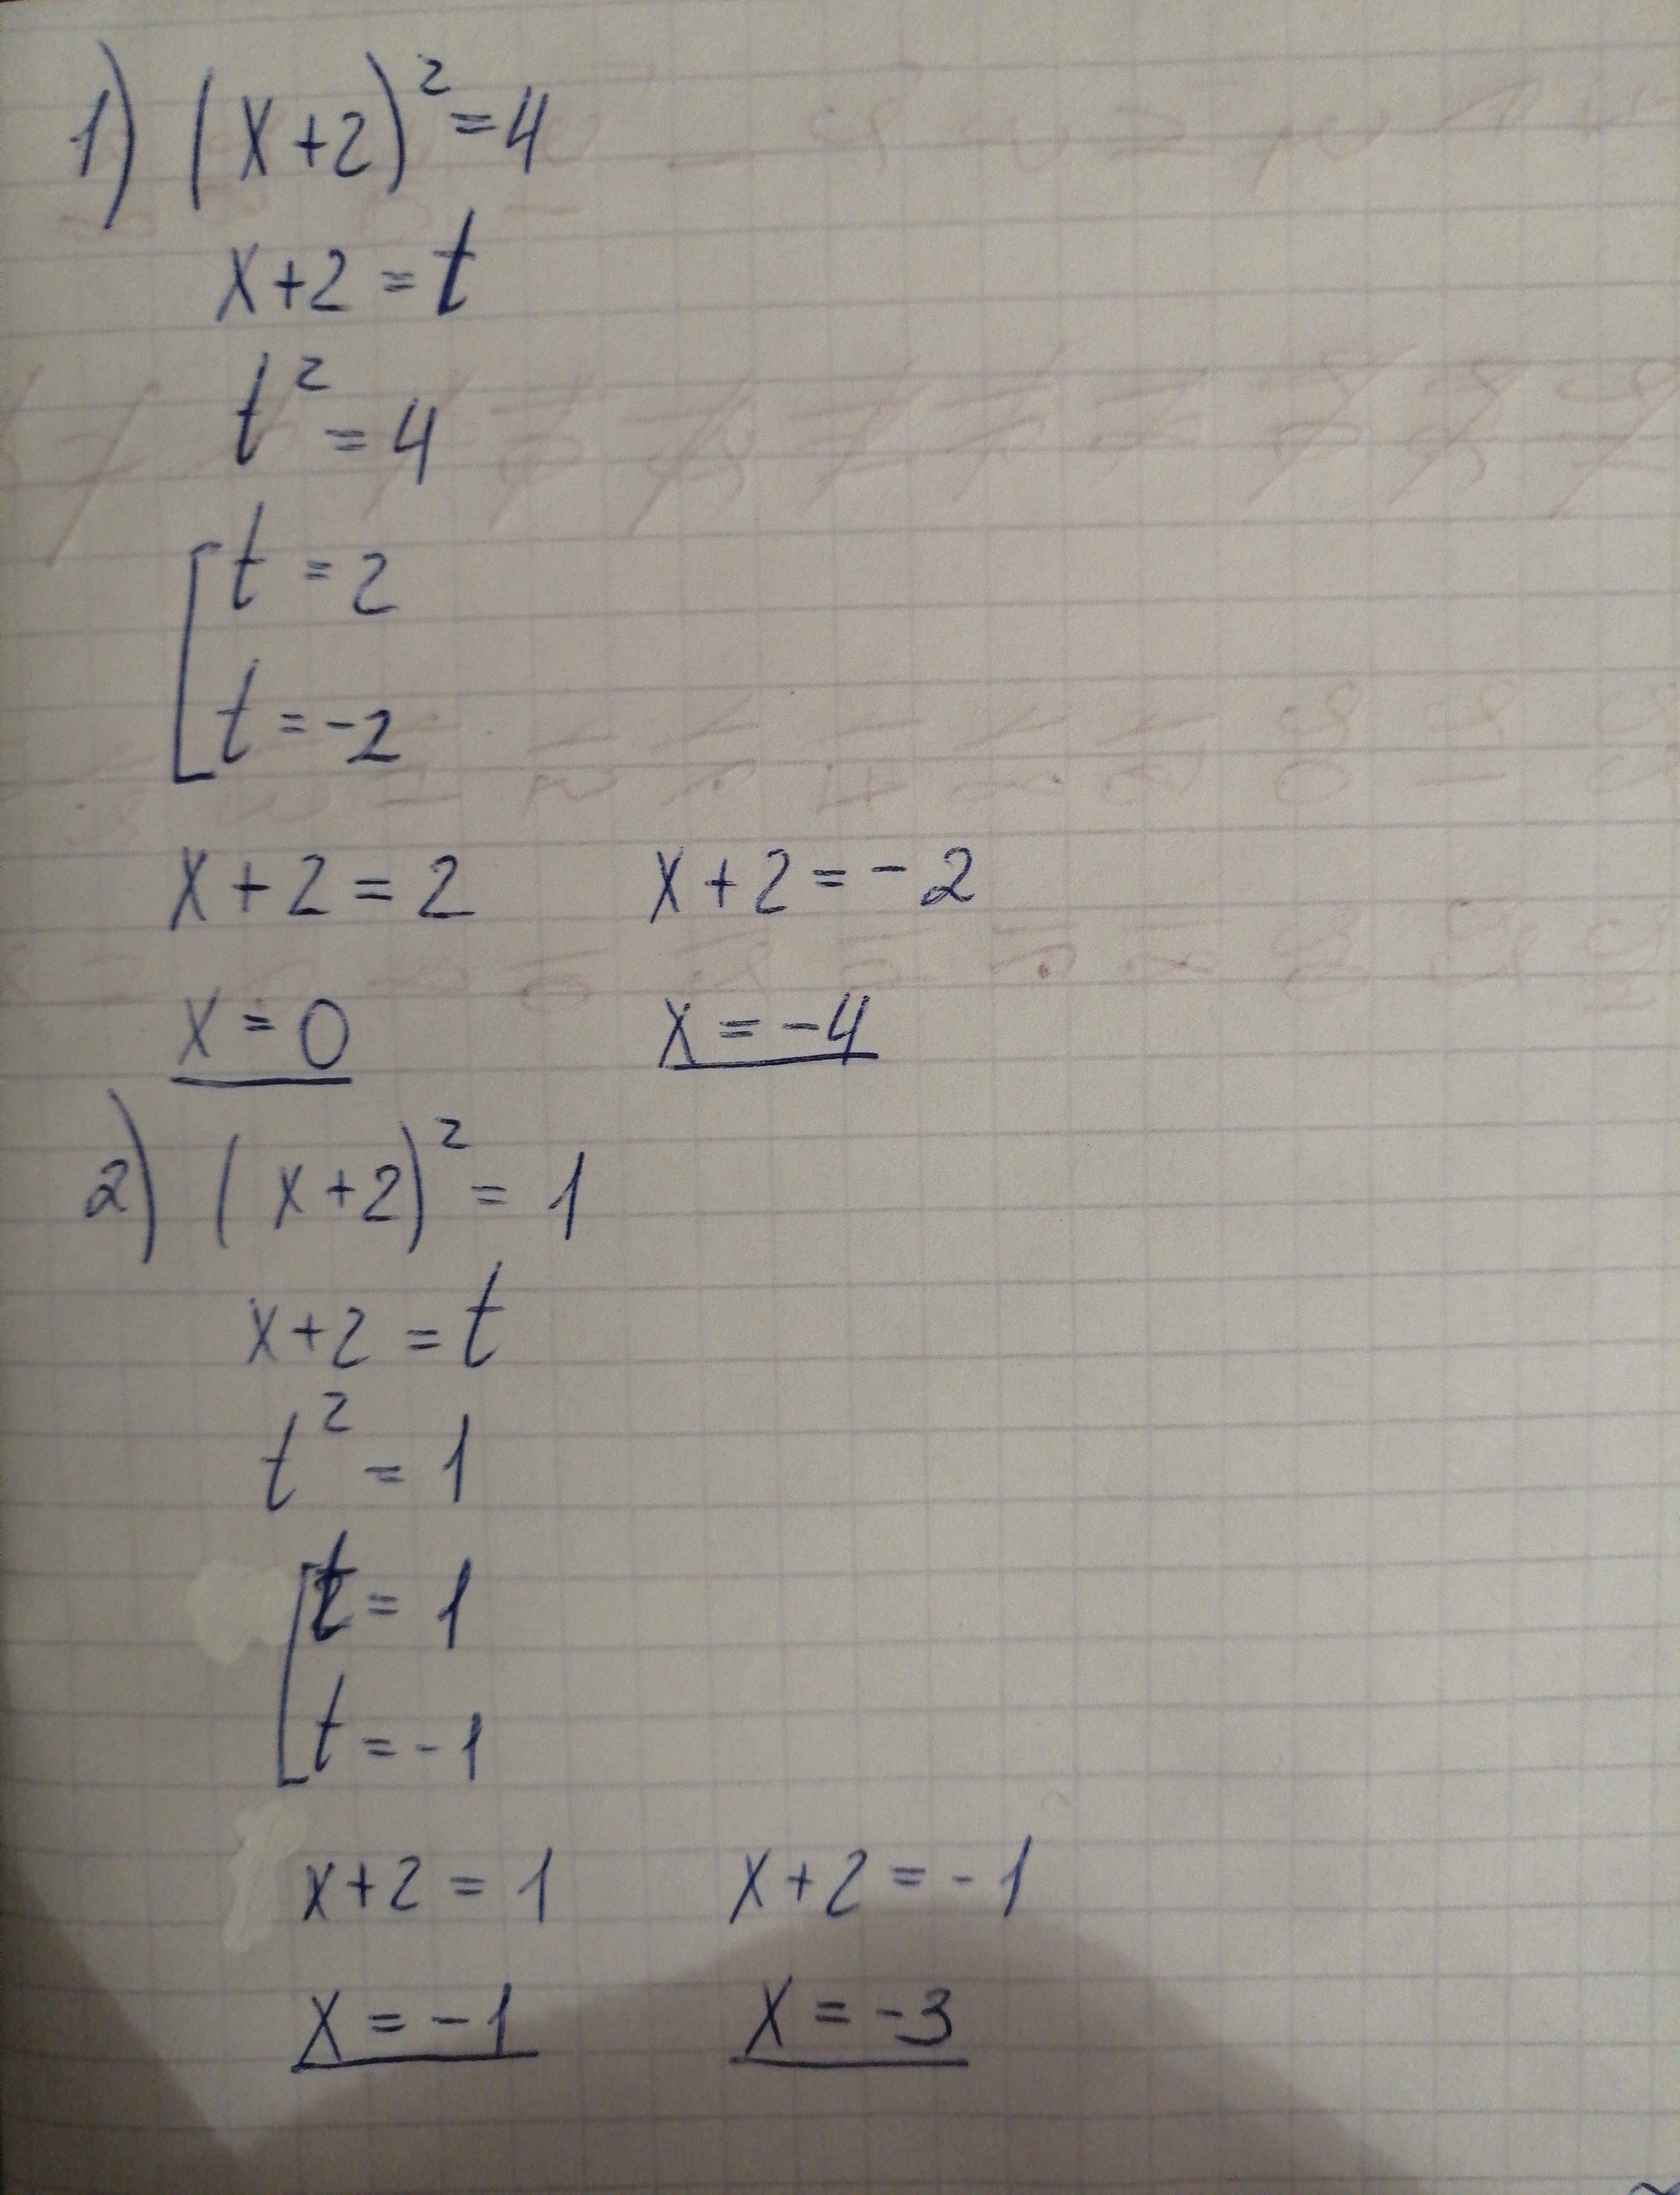 1) (x+2)² = 4
x+2 = t
t² = 4
[ t = 2
t = -2
x+2 = 2    x+2 = -2
x = 0    x = -4
2) (x+2)² = 1
x+2 = t
t² = 1
[ t = 1
t = -1
x+2 = 1    x+2 = -1
x = -1    x = -3